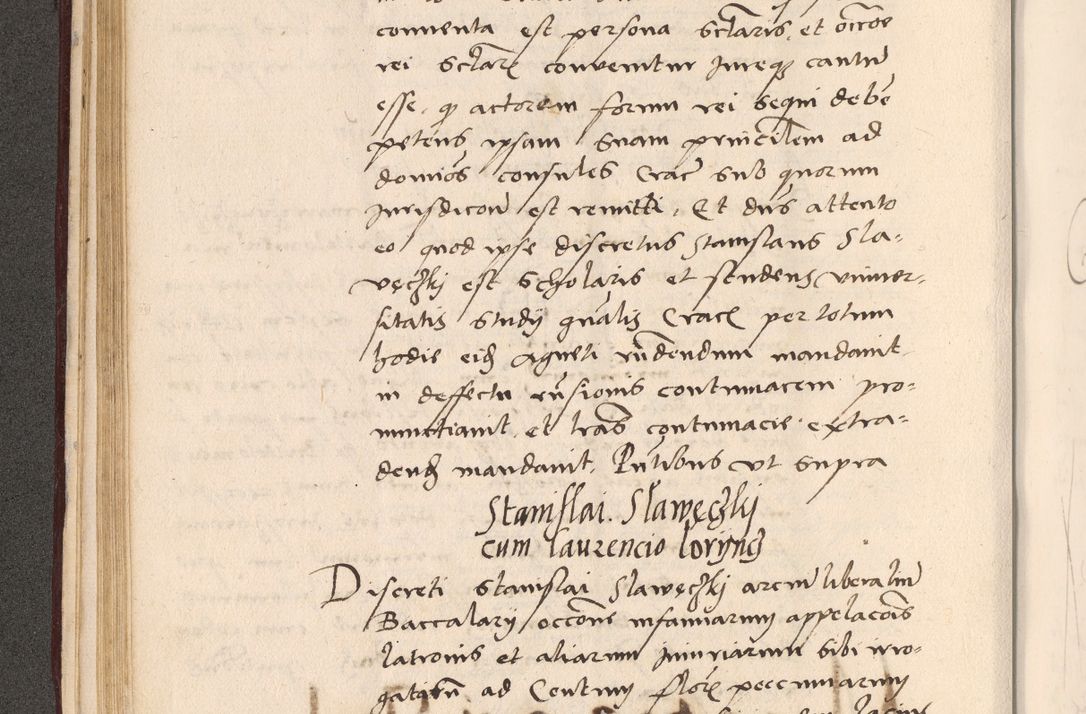 conuenta est persona sctlaris, et occoe
rei sctlarꝭ conuenitur Jureqꝫ cantu
esse, ꝙ actorem forum rei sequi debe
petens ipsam suam principlem ad
domios consules Crac sub quorum
Jurisdicon est remitti, Et dns attento
eo quod ipse discretus Stanislaus Sla-
węczkj est scholaris et studens vniuer-
sitatis studij gnalis Cracꝭ per totum
hodie eidꝫ Agneti rndendum mandauit
in deffectu rnsionis contumacem pro-
nunctiauit, et lras contumacie extra-
dendꝫ mandauit, Pntibus vt supra
Stanislai. Sławęczkij
cum laurencio loryncz
Discreti Stanislai Slawęczkj arcium liberaliu
Baccalarij occone infamiarum appelacois
latronis et aliarum Iniuriarum sibi irro-
gatarum ad Centum florꝭ peccuniarum